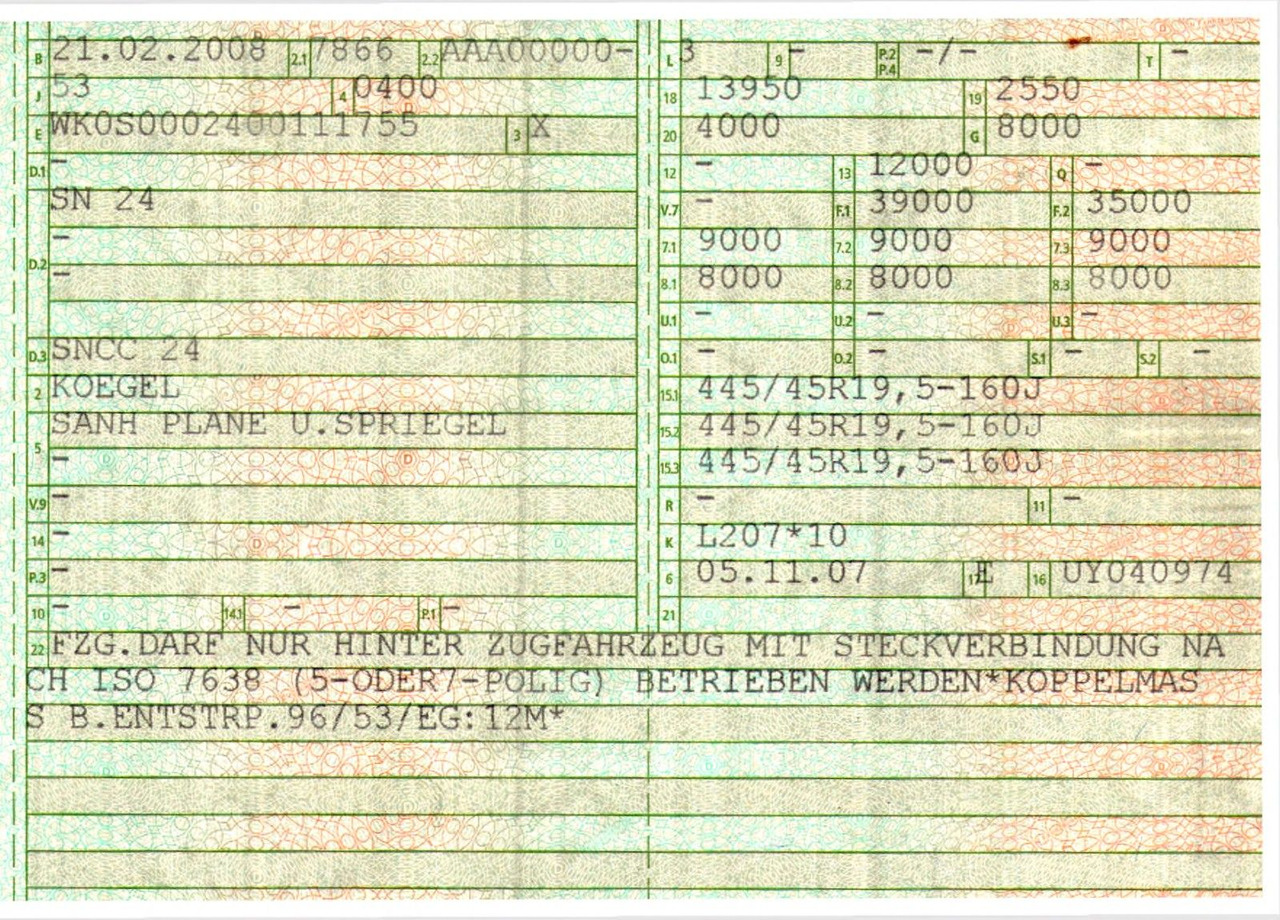 B 21.02.2008 2.1 7866 2.2 AAA00000- L 3 9 - P.2 P.4 -/- T -
J 53 4 0400 18 13950 19 2550
E WK0S0002400111755 3 X 20 4000 G 8000
D.1 - 12 - 13 12000 Q -
SN 24 V.7 - F.1 39000 F.2 35000
D.2 - 7.1 9000 7.2 9000 7.3 9000
- 8.1 8000 8.2 8000 8.3 8000
U.1 - U.2 - U.3 -
D.3 SNCC 24 O.1 - O.2 - S.1 - S.2 -
2 KOEGEL 15.1 445/45R19,5-160J
5 SANH PLANE U.SPRIEGEL 15.2 445/45R19,5-160J
- 15.3 445/45R19,5-160J
V.9 - R - 11 -
14 - K L207*10
P.3 - 6 05.11.07 17 E 16 UY040974
10 - 14.1 - P.1 - 21
22 FZG.DARF NUR HINTER ZUGFAHRZEUG MIT STECKVERBINDUNG NA
CH ISO 7638 (5-ODER7-POLIG) BETRIEBEN WERDEN*KOPPELMAS
S B.ENTSTRP.96/53/EG:12M*